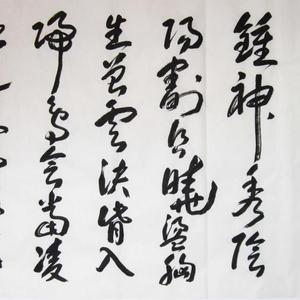 鍾神秀陰
陽割昏曉盪胸
生曾雲決眥入
歸鳥會當凌